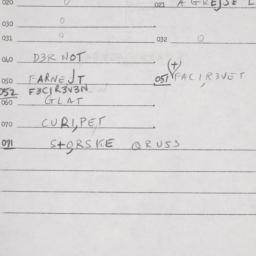 020 0 021 AGREJSE L
030 0
031 0 032 0
040 D3RNOT
050 FARNEJT 051 (+) FAC1R3VET
052 F3C1R3V3N
060 GLAT
070 CURI,PET
071 S+QRSKE QRUSS